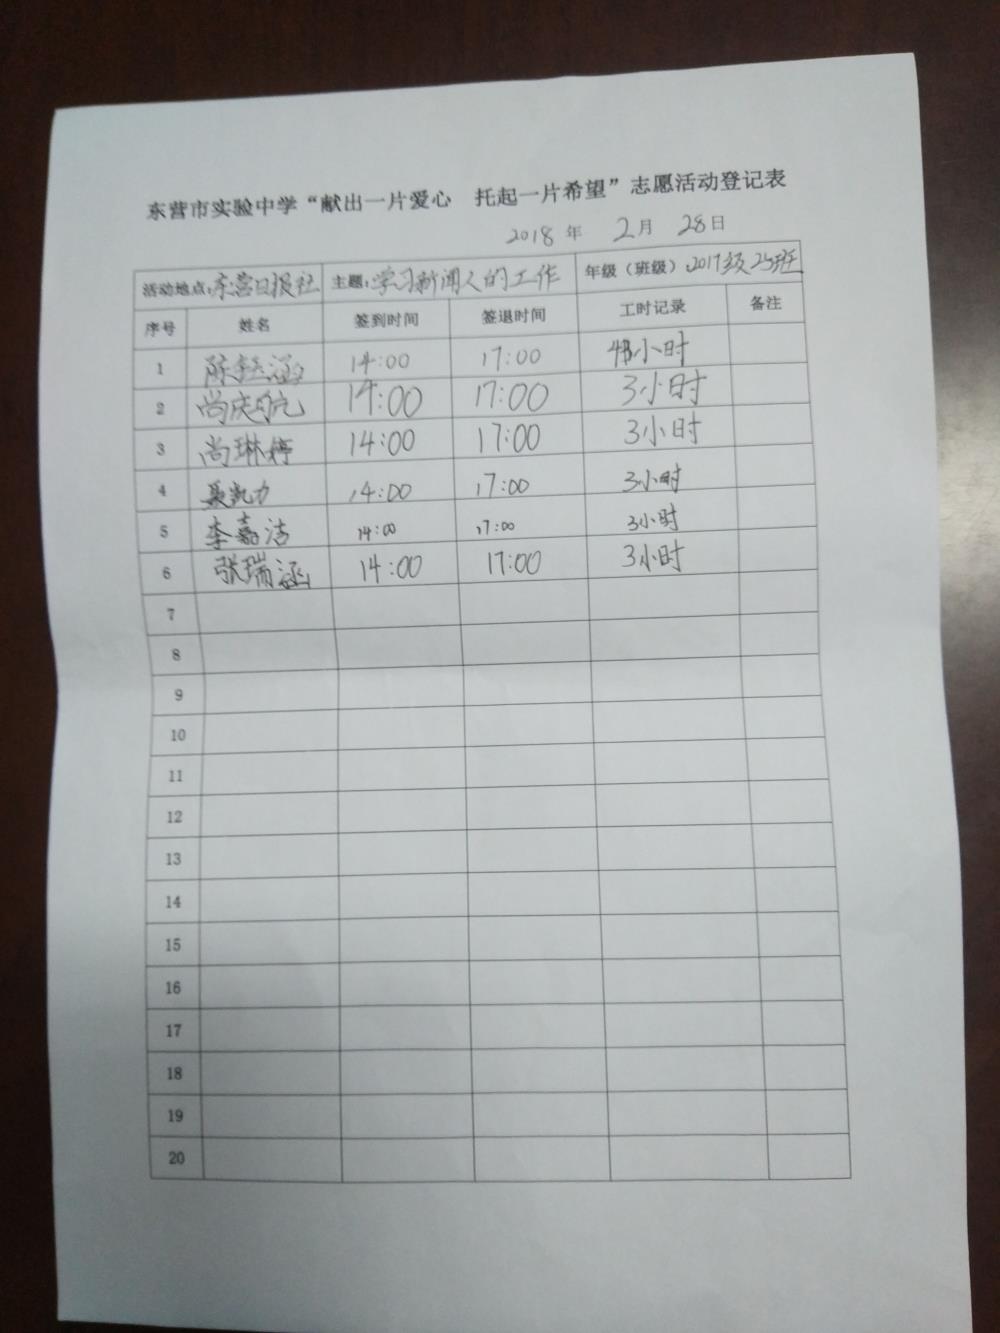 东营市实验中学“献出一片爱心 托起一片希望”志愿活动登记表
2018 年 2月 28日
活动地点:东营日报社 主题:学习新闻人的工作 年级(班级):2017级25班
序号 姓名 签到时间 签退时间 工时记录 备注
1 陈钰涵 14:00 17:00 小时
2 尚庆航 14:00 17:00 3小时
3 尚琳婷 14:00 17:00 3小时
4 聂凯力 14:00 17:00 3小时
5 李嘉洁 14:00 17:00 3小时
6 张瑞涵 14:00 17:00 3小时
7
8
9
10
11
12
13
14
15
16
17
18
19
20